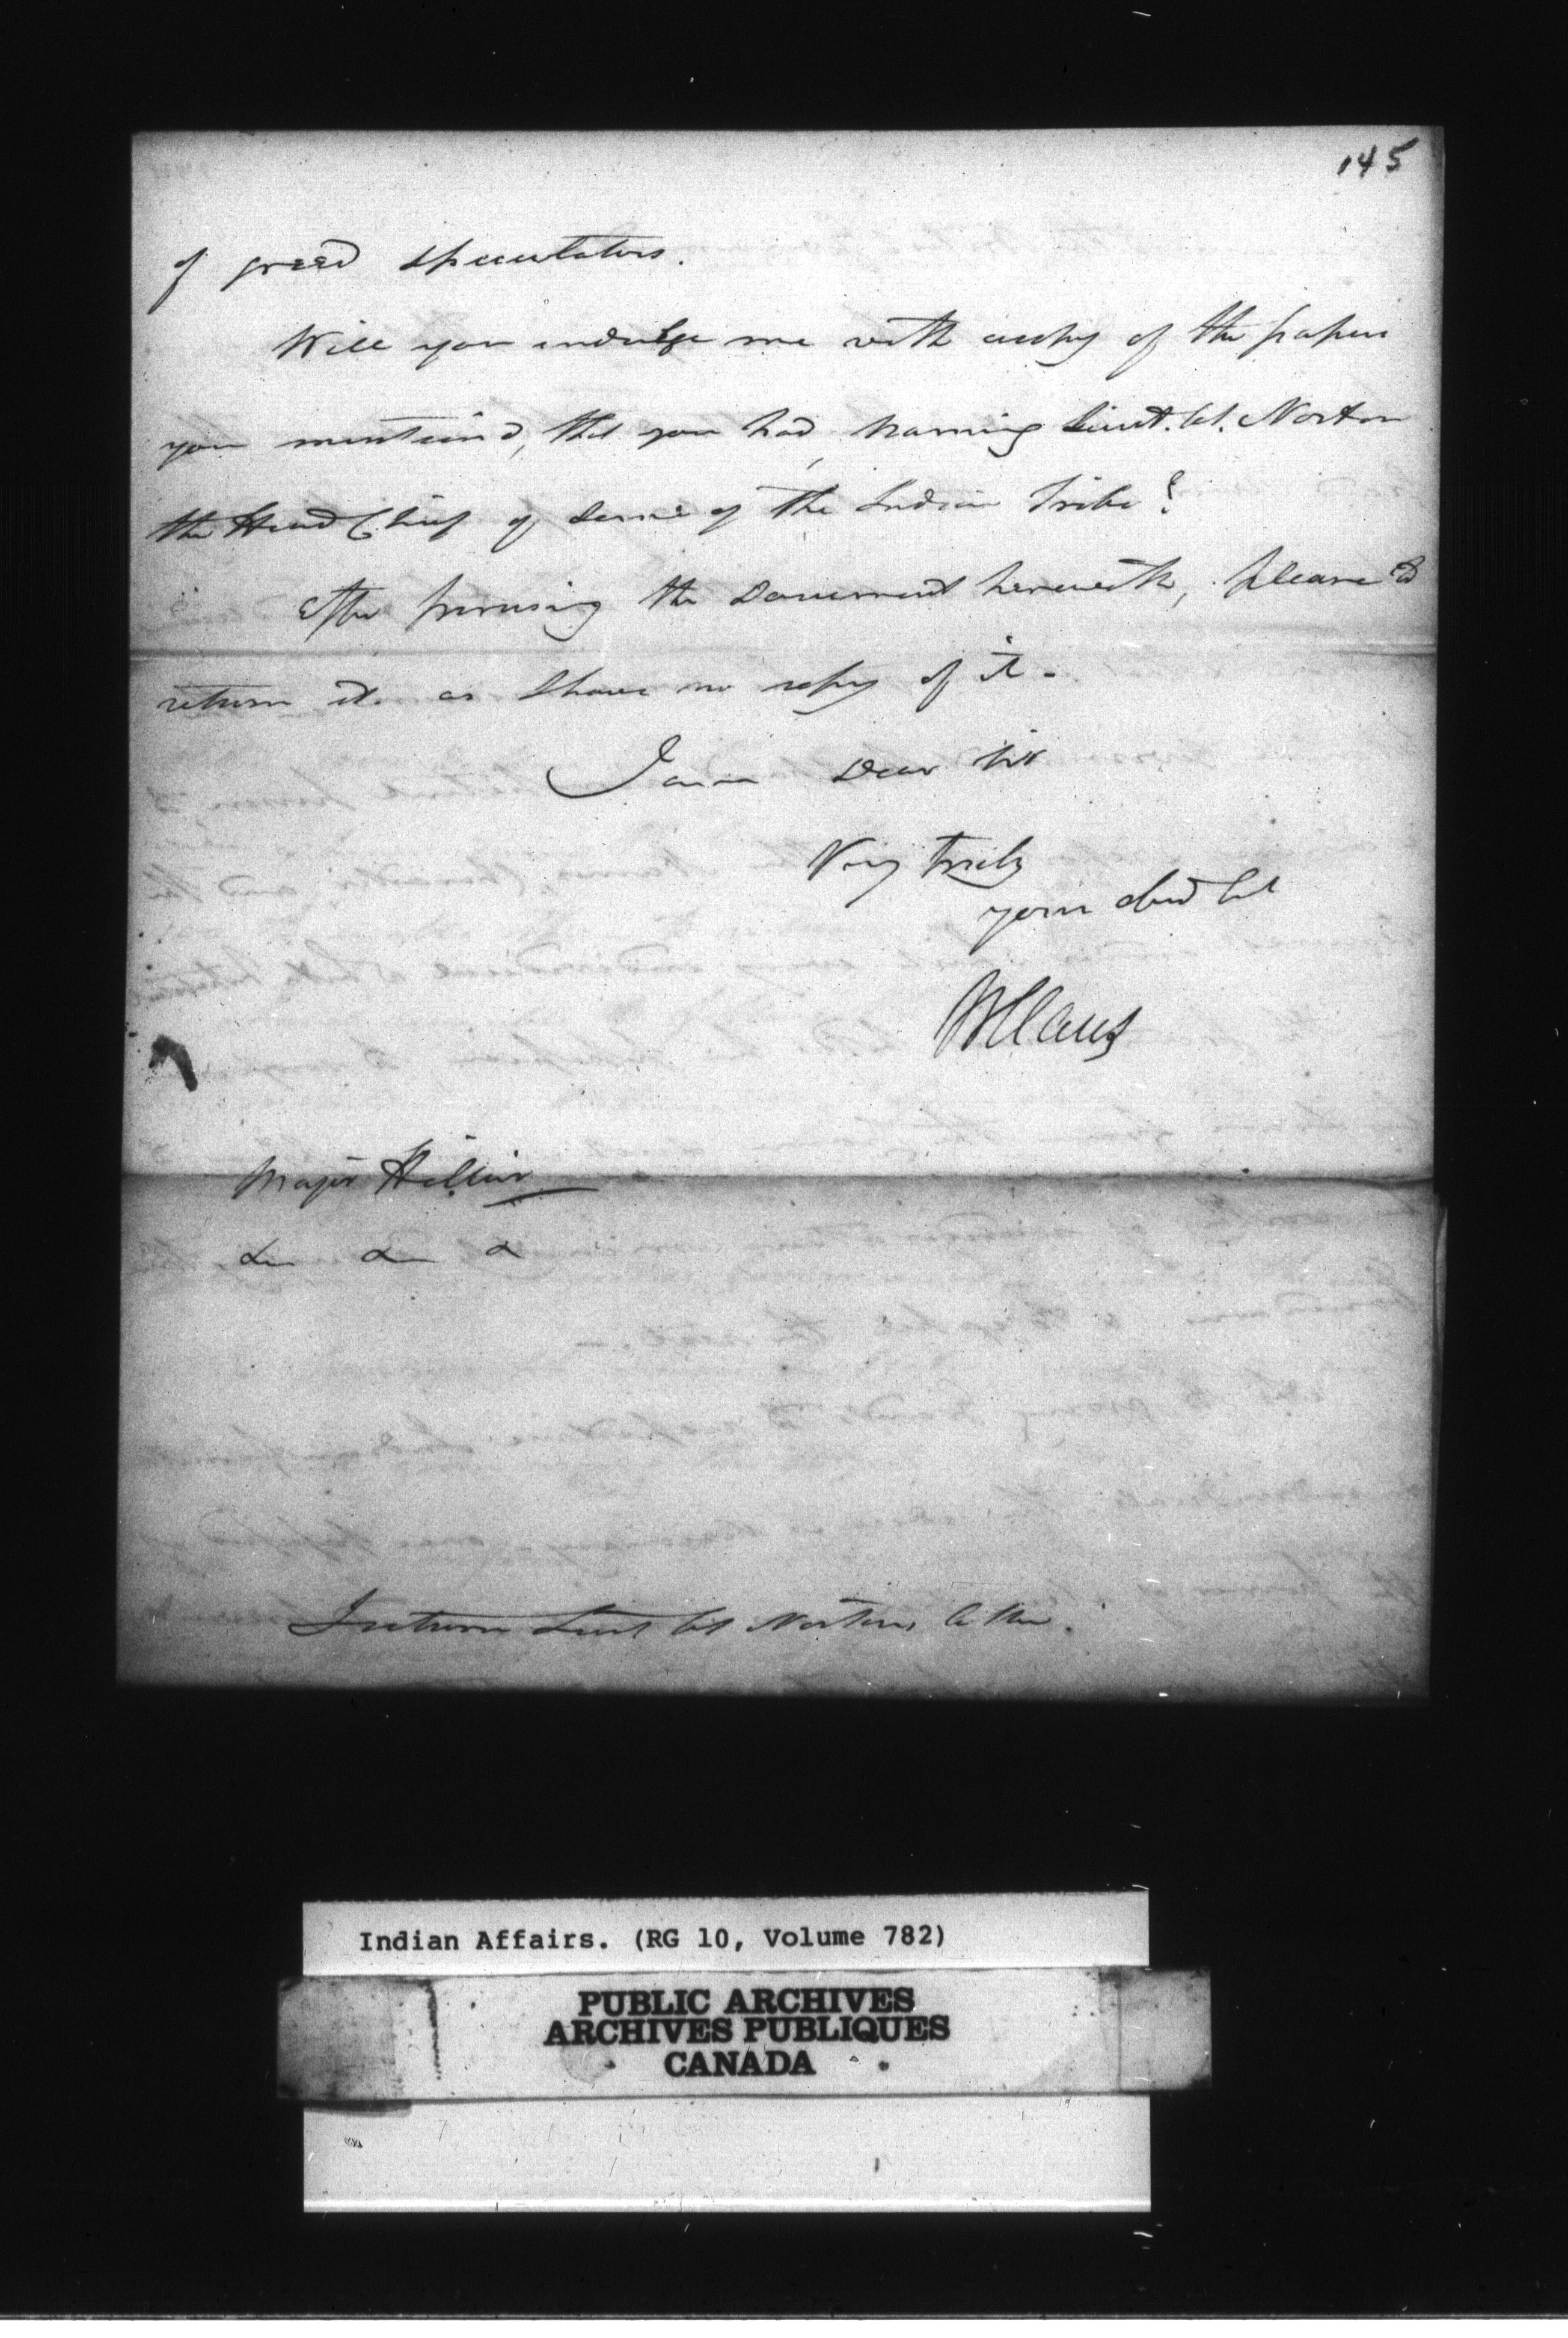 145
of greedy speculators.
Will you indulge me with a copy of the papers
you mention'd, that you had, naming Lieut. Col. Norton
the Head Chief of some of the Indian Tribe?
After perusing the Document herewith, please to
return it as I have no copy of it -
I am Dear Sir
Very truly
your obed Set
W Claus
Major Hillier
& & &
I return Lieut Col Nortons letter.
Indian Affairs. (RG 10, Volume 782)
PUBLIC ARCHIVES
ARCHIVES PUBLIQUES
CANADA